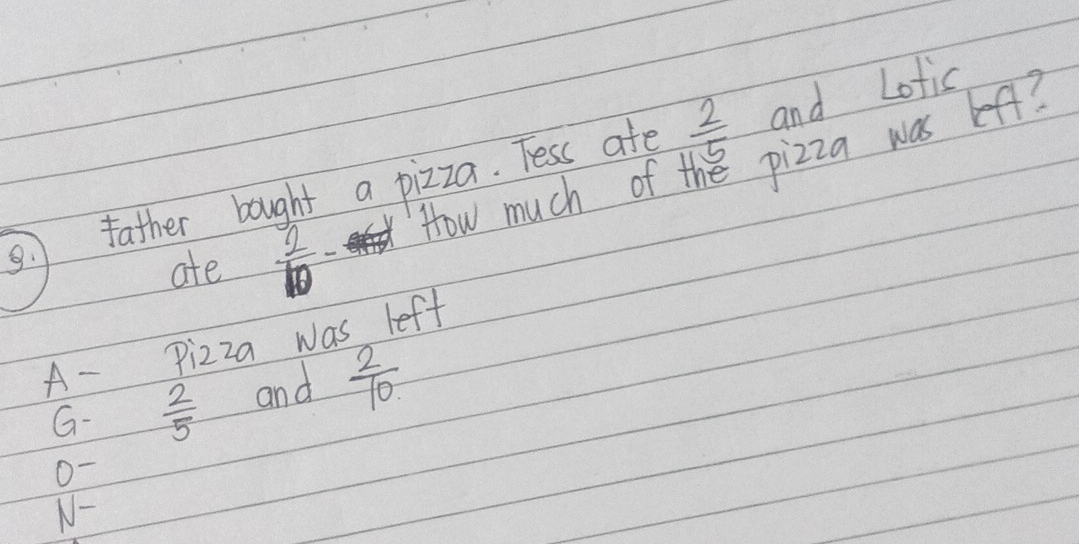 9. Father bought a pizza. Tess ate 2/5 and Lotis
ate 2/10. How much of the pizza was left?
A- Pizza was left
G- 2/5 and 2/10.
O-
N-